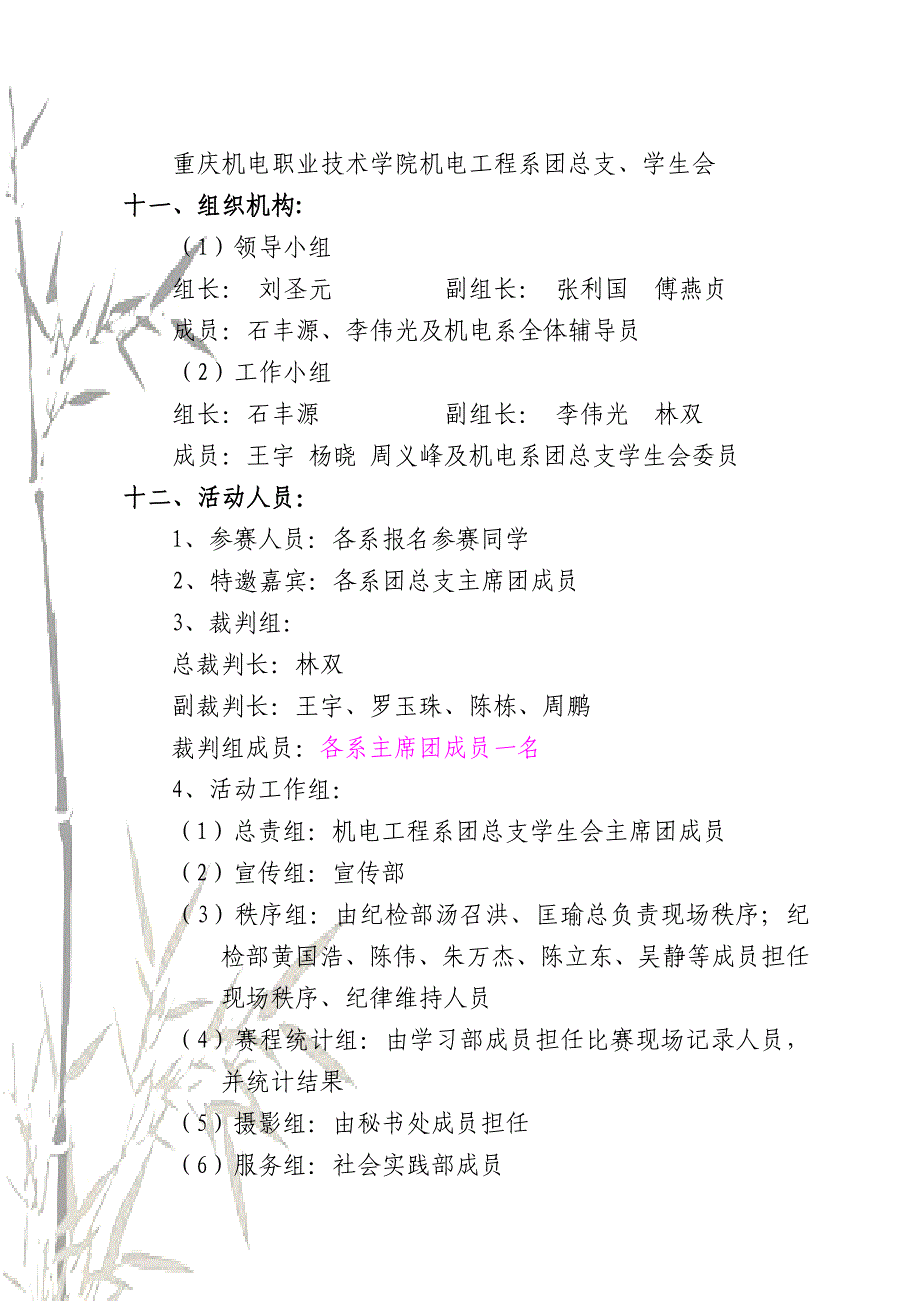 重庆机电职业技术学院机电工程系团总支、学生会
十一、组织机构：
（1）领导小组
组长： 刘圣元 副组长： 张利国 傅燕贞
成员：石丰源、李伟光及机电系全体辅导员
（2）工作小组
组长：石丰源 副组长： 李伟光 林双
成员：王宇 杨晓 周义峰及机电系团总支学生会委员
十二、活动人员：
1、参赛人员：各系报名参赛同学
2、特邀嘉宾：各系团总支主席团成员
3、裁判组：
总裁判长：林双
副裁判长：王宇、罗玉珠、陈栋、周鹏
裁判组成员：各系主席团成员一名
4、活动工作组：
（1）总责组：机电工程系团总支学生会主席团成员
（2）宣传组：宣传部
（3）秩序组：由纪检部汤召洪、匡瑜总负责现场秩序；纪
检部黄国浩、陈伟、朱万杰、陈立东、吴静等成员担任
现场秩序、纪律维持人员
（4）赛程统计组：由学习部成员担任比赛现场记录人员，
并统计结果
（5）摄影组：由秘书处成员担任
（6）服务组：社会实践部成员